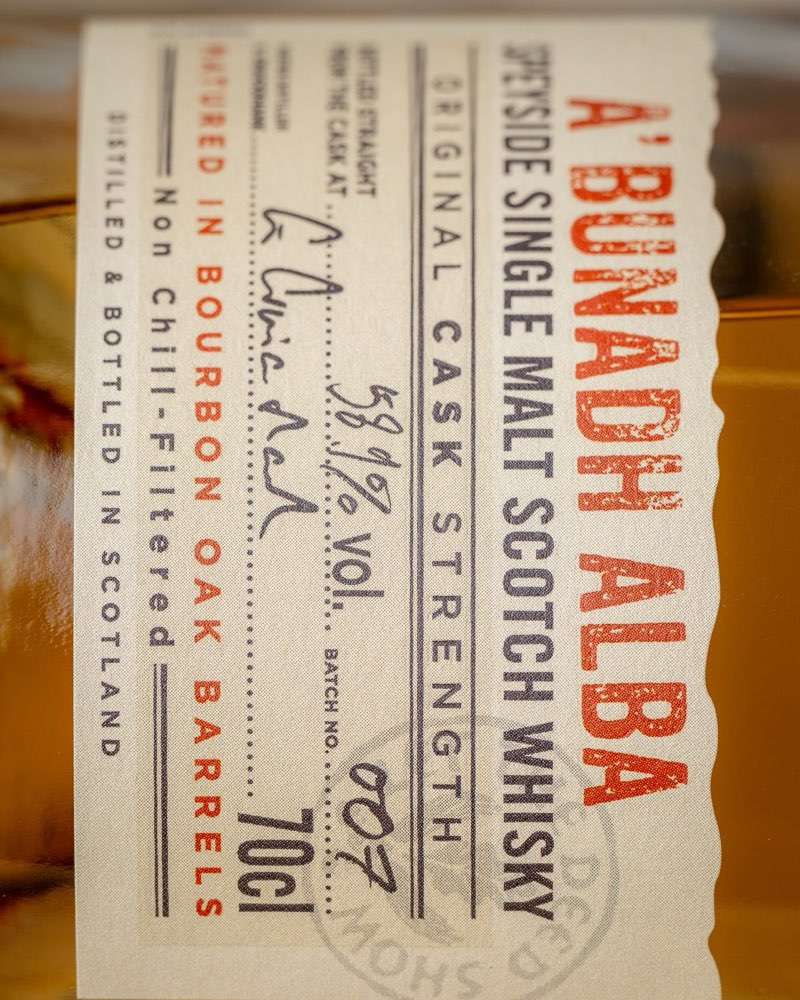 A'BUNADH ALBA
SPEYSIDE SINGLE MALT SCOTCH WHISKY
ORIGINAL CASK STRENGTH
BOTTLED STRAIGHT
FROM THE CASK AT 58.9% VOL. BATCH NO. 007
70cl
MATURED IN BOURBON OAK BARRELS
Non Chill-Filtered
DISTILLED & BOTTLED IN SCOTLAND
DEED SHOW